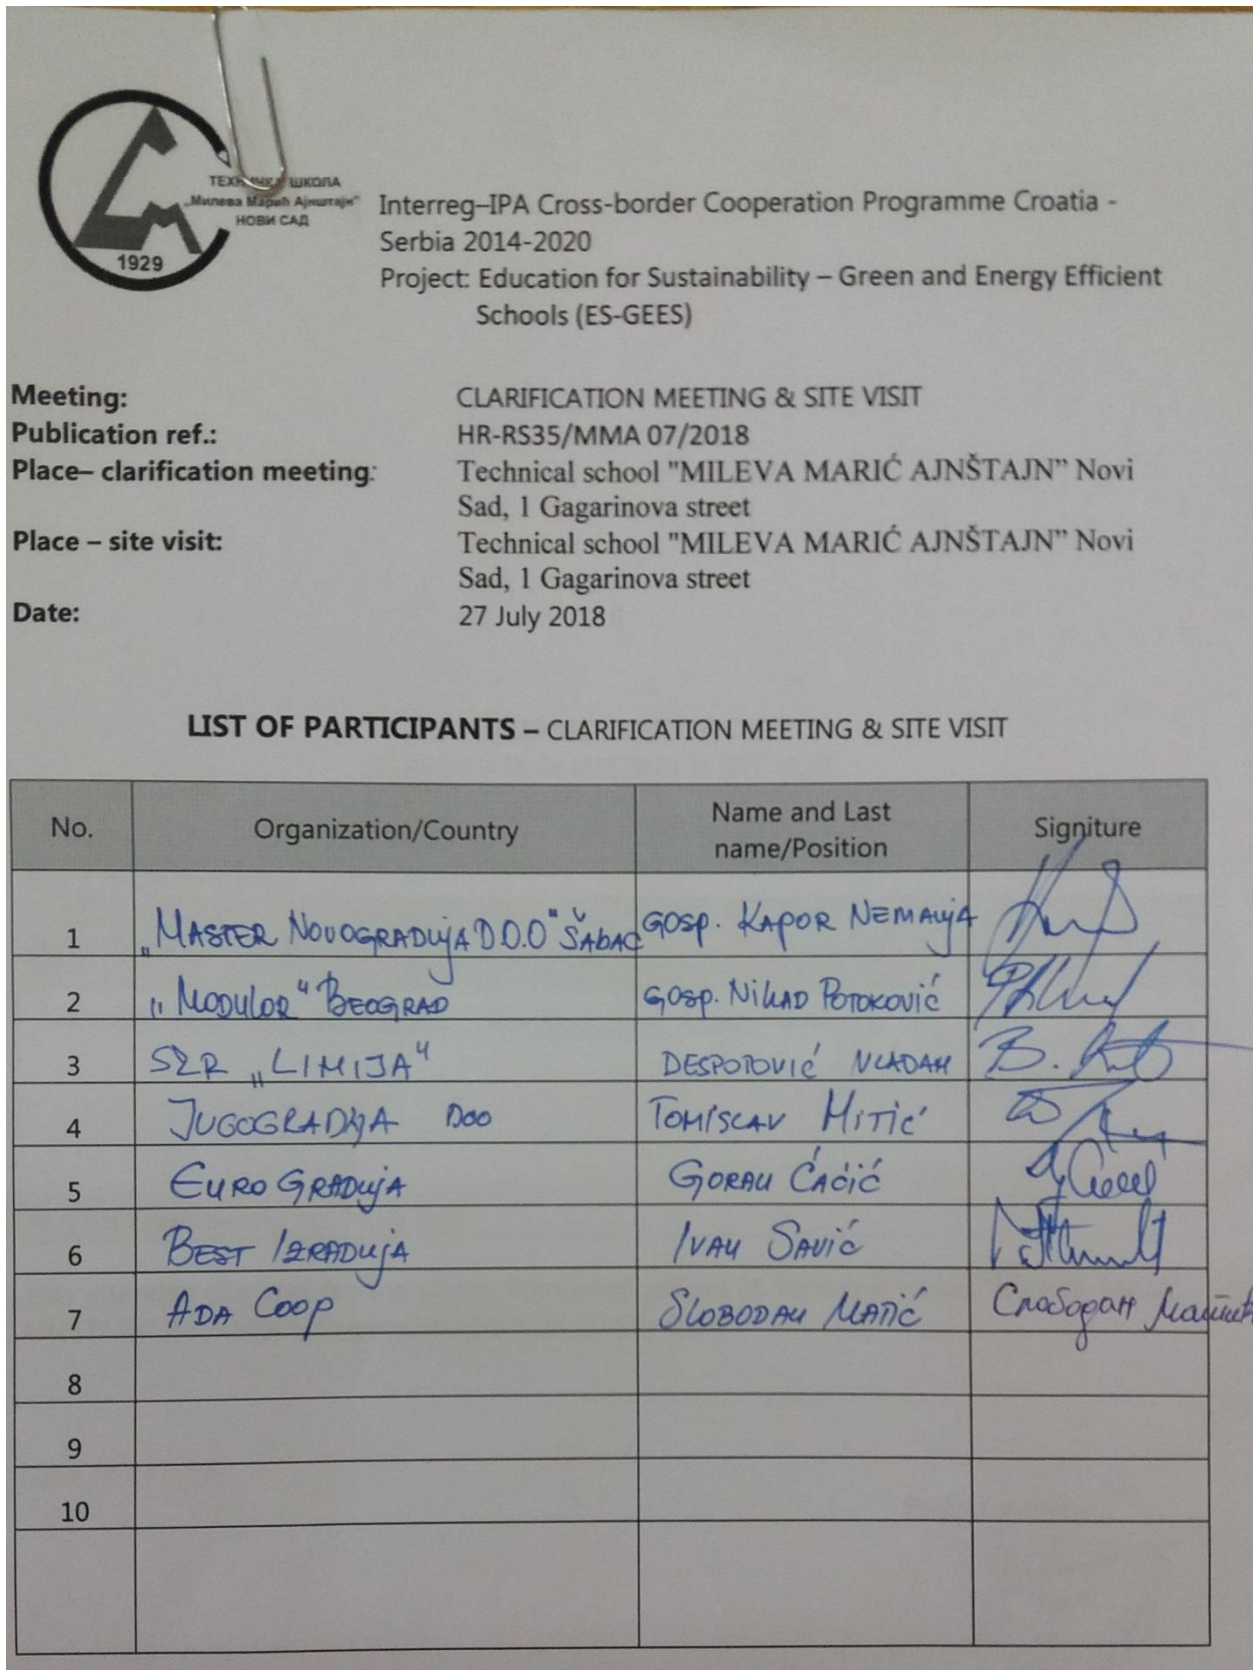 ТЕХНИЧКА ШКОЛА
„Милева Марић Ајнштајн"
НОВИ САД
1929
Interreg–IPA Cross-border Cooperation Programme Croatia -
Serbia 2014-2020
Project: Education for Sustainability – Green and Energy Efficient
Schools (ES-GEES)
Meeting: CLARIFICATION MEETING & SITE VISIT
Publication ref.: HR-RS35/MMA 07/2018
Place– clarification meeting: Technical school "MILEVA MARIĆ AJNŠTAJN” Novi
Sad, 1 Gagarinova street
Place – site visit: Technical school "MILEVA MARIĆ AJNŠTAJN” Novi
Sad, 1 Gagarinova street
Date: 27 July 2018
LIST OF PARTICIPANTS – CLARIFICATION MEETING & SITE VISIT
No. Organization/Country Name and Last name/Position Signiture
1 „MASTER NOVOGRADNJA D.O.O" ŠABAC GOSP. KAPOR NEMANJA
2 „MODULOR" BEOGRAD GOSP. NIKAD POTOKOVIĆ
3 SZR „LIMIJA" DESPOTOVIĆ VLADAN
4 JUGOGRADNJA DOO TOMISLAV MITIĆ
5 EURO GRADNJA GORAN ĆAĆIĆ
6 BEST IZGRADNJA IVAN SAVIĆ
7 ADA COOP SLOBODAN MATIĆ Слободан Матић
8
9
10